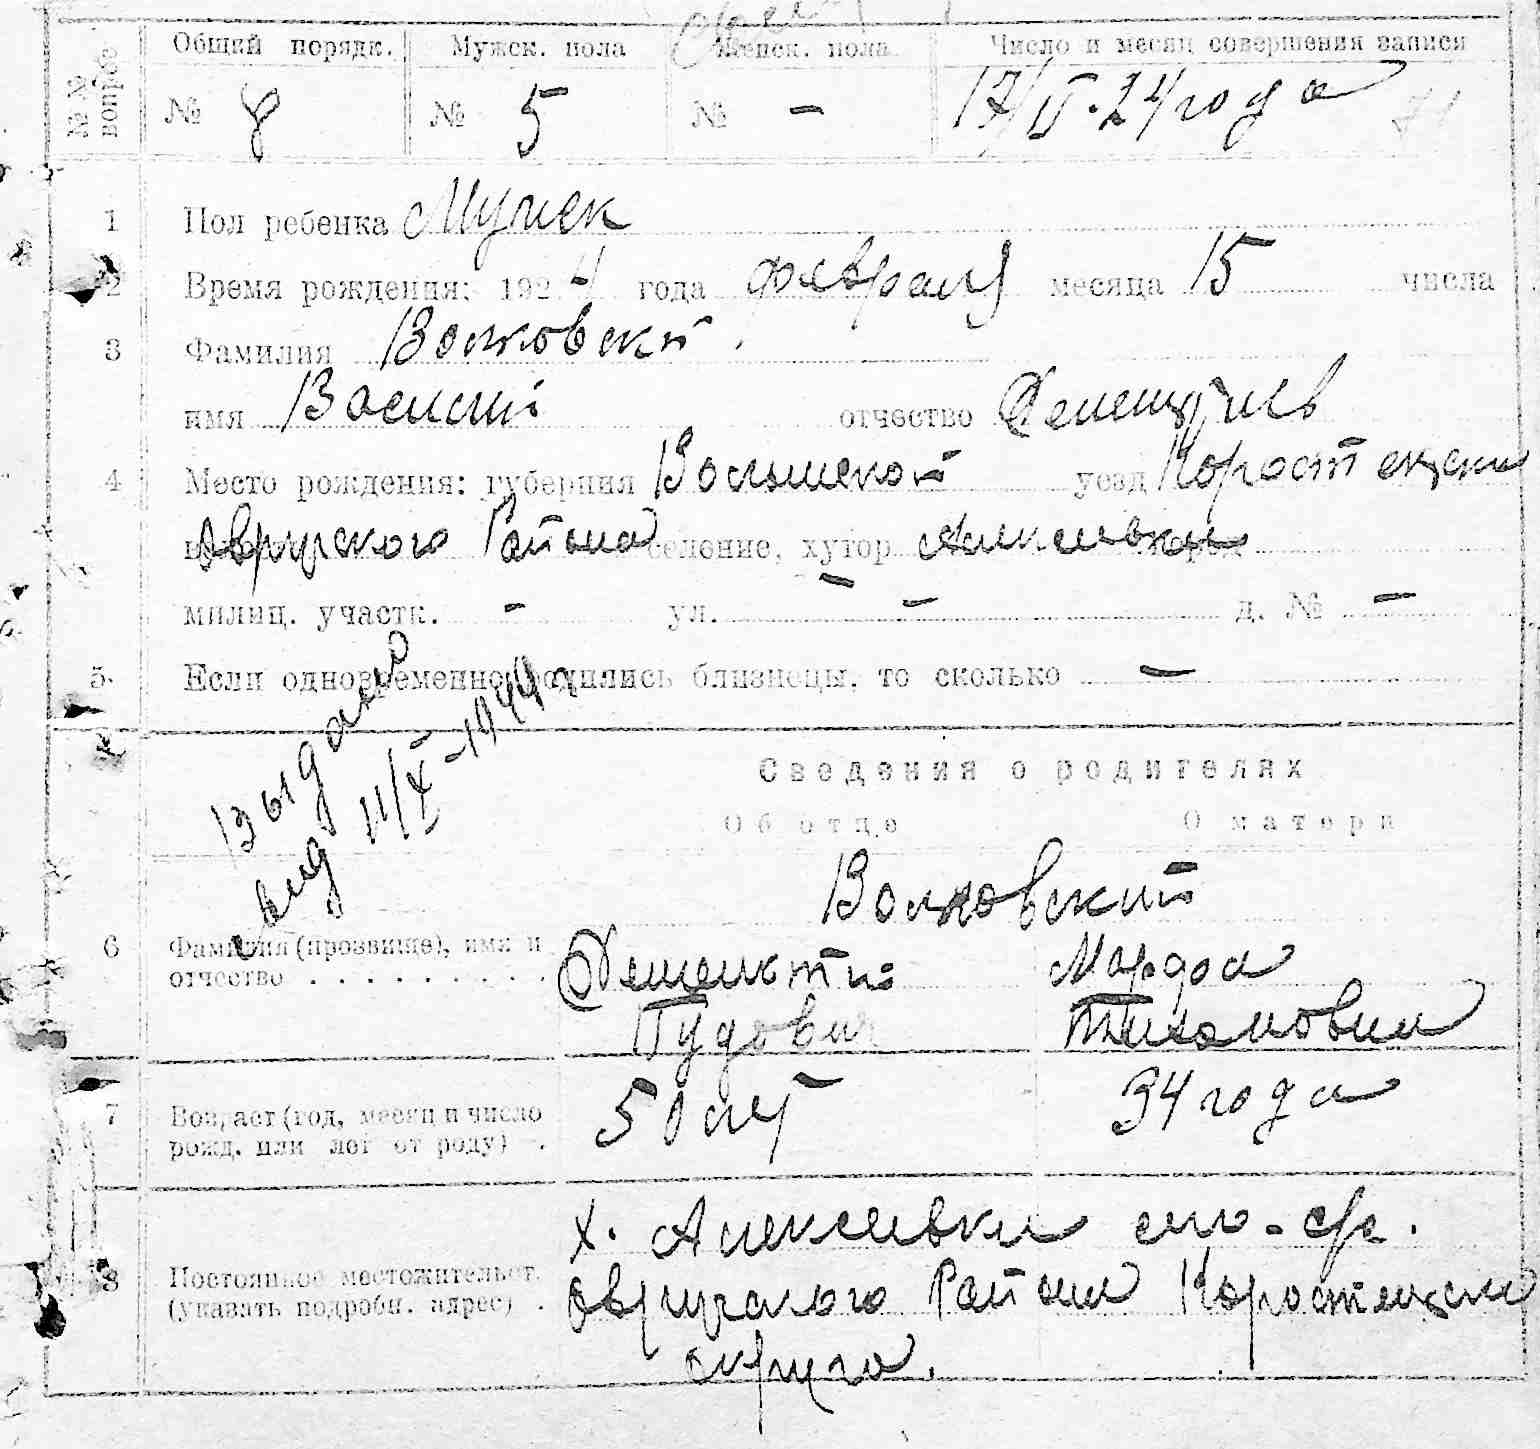 №№ вопросов Общий порядк. Мужск. пола Женск. пола Число и месяц совершения записи
№ 8 № 5 № - 17/II-24 года
1 Пол ребенка Мужск
2 Время рождения: 1924 года февраля месяца 15 числа
3 Фамилия Волковский
имя Василий отчество
4 Место рождения: губерния Волынской уезд Коростенский
Овручского Района селение, хутор Алексеевки
милиц. участк. - ул. - д. № -
5. Если одновременно родились близнецы, то сколько -
Выдано
свид 11/X-1944 г
Сведения о родителях
Об отце О матери
Волковский
6 Фамилия (прозвище), имя и
отчество . . . . . . . . . . . Дементий Марфа
Гудович Тихоновна
7 Возраст (год, месяц и число
рожд. или лет от роду) . 50 лет 34 года
х. Алексеевки
8 Постоянное местожительст.
(указать подробн. адрес) . Овручского Района Коростенский
округа.